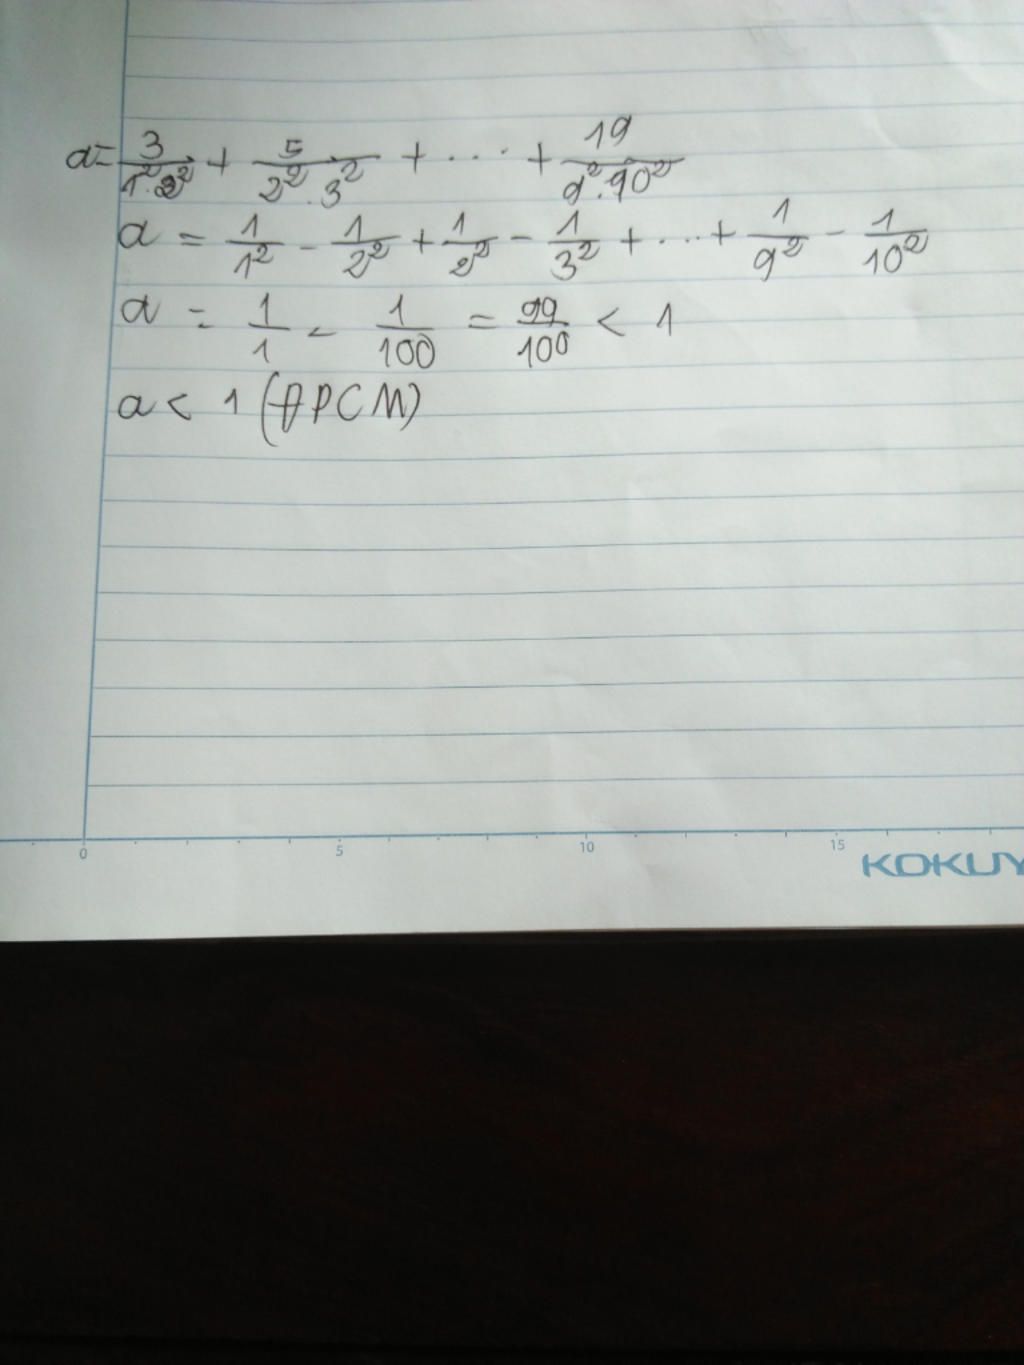 a = 3/1².2² + 5/2².3² + .... + 19/9².10²
a = 1/1² - 1/2² + 1/2² - 1/3² + ... + 1/9² - 1/10²
a = 1/1 - 1/100 = 99/100 < 1
a < 1 (ĐPCM)
0 5 10 15
KOKUY